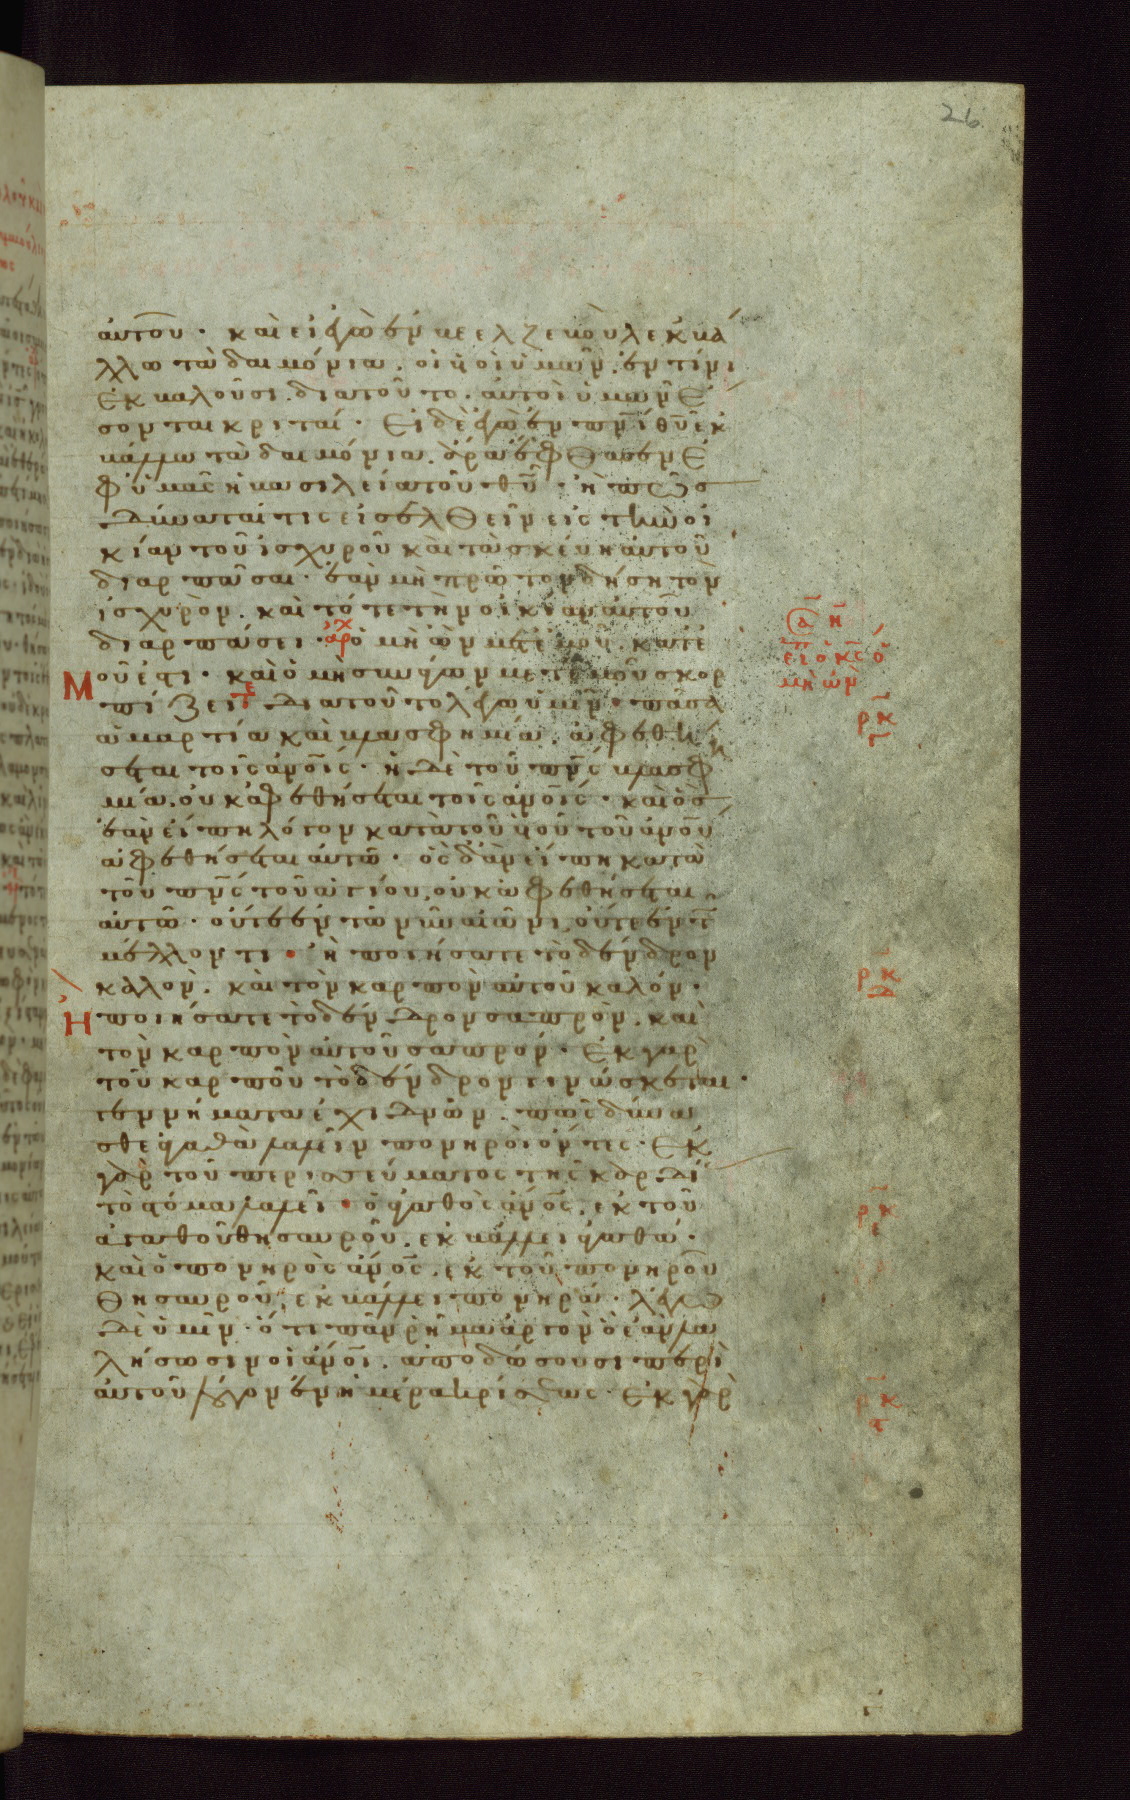 26
αὐτοῦ · καὶ εἰ ἐγὼ ἐν βεελζεβοὺλ ἐκβά
λλω τὰ δαιμόνια. οἱ υἱοὶ ὑμῶν. ἐν τίνι
ἐκβαλοῦσι. διατοῦτο. αὐτοὶ ὑμῶν ἔ
σονται κριταί · Εἰ δὲ ἐγὼ ἐν πνι θυ ἐκ
βάλλω τὰ δαιμόνια. ἄρα ἔφθασεν ἐ
φ ὑμᾶς ἡ βασιλεία τοῦ θυ · ἢ πῶς
δύναταί τις εἰσελθεῖν εἰς τὴν οἰ
κίαν τοῦ ἰσχυροῦ καὶ τὰ σκεύη αὐτοῦ
διαρπᾶσαι · ἐὰν μὴ πρῶτον δήσῃ τὸν
ἰσχυρὸν. καὶ τότε τὴν οἰκίαν αὐτοῦ
διαρπάσει · αρχ ὁ μὴ ὢν μετ ἐμοῦ. κατ ἐ
μοῦ ἐστι · καὶ ὁ μὴ συνάγων μετ ἐμοῦ σκορ
πίζει τε διατοῦτο λέγω ὑμῖν · πᾶσα
ἁμαρτία καὶ βλασφημία. ἀφεθή
σεται τοῖς ανοις · ἡ δὲ τοῦ πνς βλασφη
μία. οὐκ ἀφεθήσεται τοῖς ανοις · καὶ ὃς
ἐὰν εἴπῃ λόγον κατὰ τοῦ υἱοῦ τοῦ ανου
ἀφεθήσεται αὐτῶ · ὃς δ ἂν εἴπῃ κατὰ
τοῦ πνς τοῦ ἁγίου. οὐκ ἀφεθήσεται
αὐτῶ · οὔτε ἐν τῶ νῦν αἰῶνι οὔτε ἐν τ
μέλλοντι · ἢ ποιήσατε τὸ δένδρον
καλὸν. καὶ τὸν καρπὸν αὐτοῦ καλόν ·
Ἢ ποιήσατε τὸ δένδρον σαπρὸν. καὶ
τὸν καρπὸν αὐτοῦ σαπρόν · Ἐκ γὰρ
τοῦ καρποῦ τὸ δένδρον γινώσκεται ·
γεννήματα ἐχιδνῶν. πῶς δύνα
σθε ἀγαθὰ λαλεῖν πονηροὶ ὄντες · Ἐκ
γὰρ τοῦ περισσεύματος τῆς καρδί
τὸ στόμα λαλεῖ · ὁ ἀγαθὸς ανος. ἐκ τοῦ
ἀγαθοῦ θησαυροῦ. ἐκβάλλει ἀγαθά ·
καὶ ὁ πονηρὸς ανος. ἐκ τοῦ πονηροῦ
θησαυροῦ. ἐκβάλλει πονηρά · λέγω
δὲ ὑμῖν · ὅτι πᾶν ῥῆμα ἀργὸν ὃ ἐὰν λα
λήσωσιν οἱ ανοι. ἀποδώσουσι περὶ
αὐτοῦ λόγον ἐν ἡμέρα κρίσεως · Ἐκ γὰρ
εἶπ ὁ κς ὁ
μὴ ὢν
ρκ
γ
ρκ
δ
ρκ
ε
ρκ